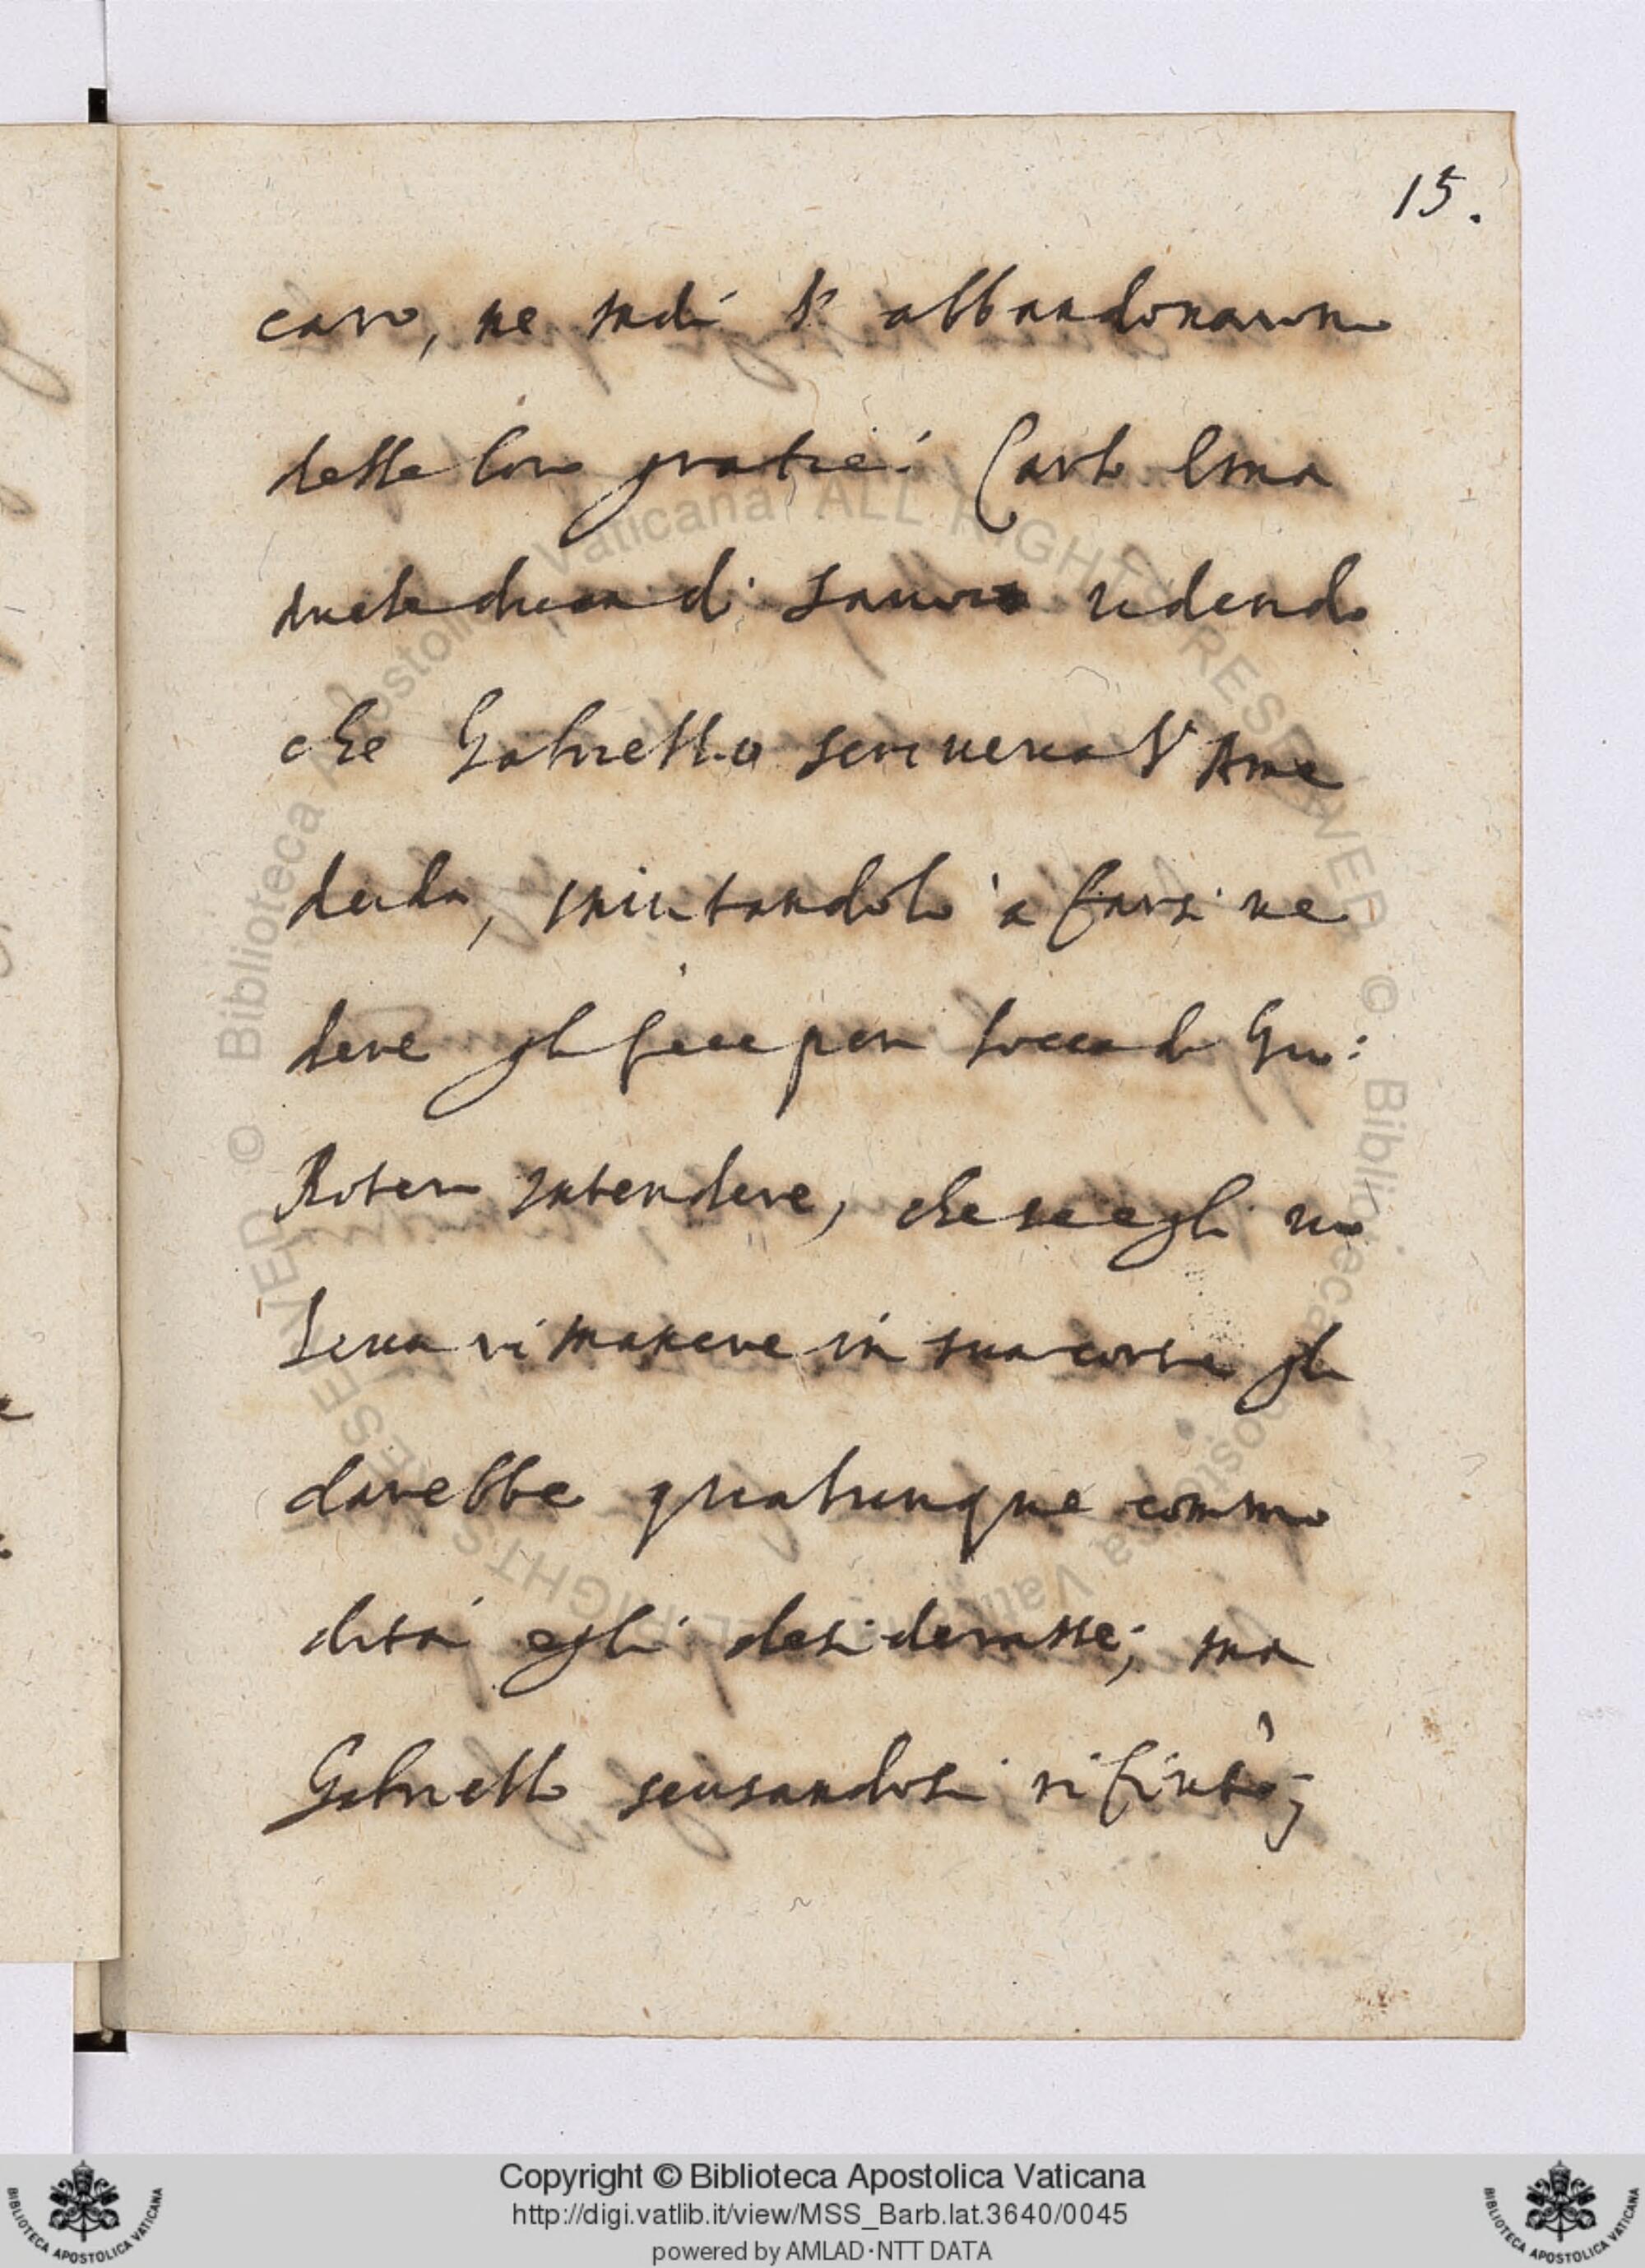 15.
caro, ne mdi l' abbandonarono
delle loro gratie. Carlo Ema
nuele duca di Sauoia udendo
che Gabriello scriueua l' Ame
deida, inuitandolo à farsi ue
dere gli fece per bocca di Gio:
Botero intendere, che se egli uo
leua rimanere in sua corte gli
darebbe qualunque commo
dità egli desiderasse; ma
Gabriello scusandosi rifiutò;
© Biblioteca Apostolica Vaticana ALL RIGHTS RESERVED © Biblioteca Apostolica Vaticana ALL RIGHTS RESERVED
Copyright © Biblioteca Apostolica Vaticana
http://digi.vatlib.it/view/MSS_Barb.lat.3640/0045
powered by AMLAD·NTT DATA
BIBLIOTECA APOSTOLICA VATICANA
BIBLIOTECA APOSTOLICA VATICANA